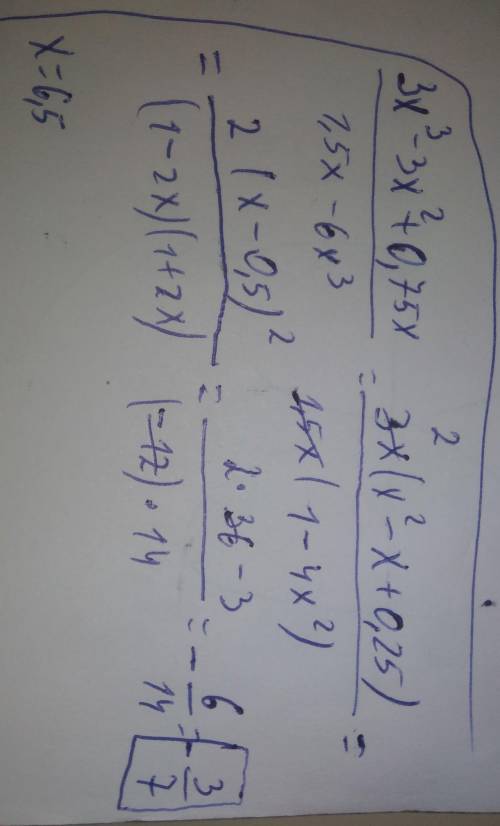 3x³ - 3x² + 0,75x / 1,5x - 6x³ = 3x² (x² - x + 0,25) / 1,5x (1 - 4x²) =
= 2 (x - 0,5)² / (1 - 2x)(1 + 2x) = 2 · 36 - 3 / (-12) · 14 = - 6/14 = - 3/7
x = 6,5